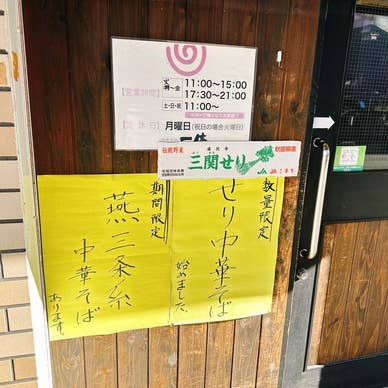 【営業時間】
火～金 11:00～15:00
17:30～21:00
土・日・祝 11:00～
【定休日】 月曜日(祝日の場合火曜日)
伝統野菜
湯沢市
三関せり
秋田県産
JA JAこまち
数量限定
せり中華そば
始めました。
期間限定
燕三条系
中華そば
あります。